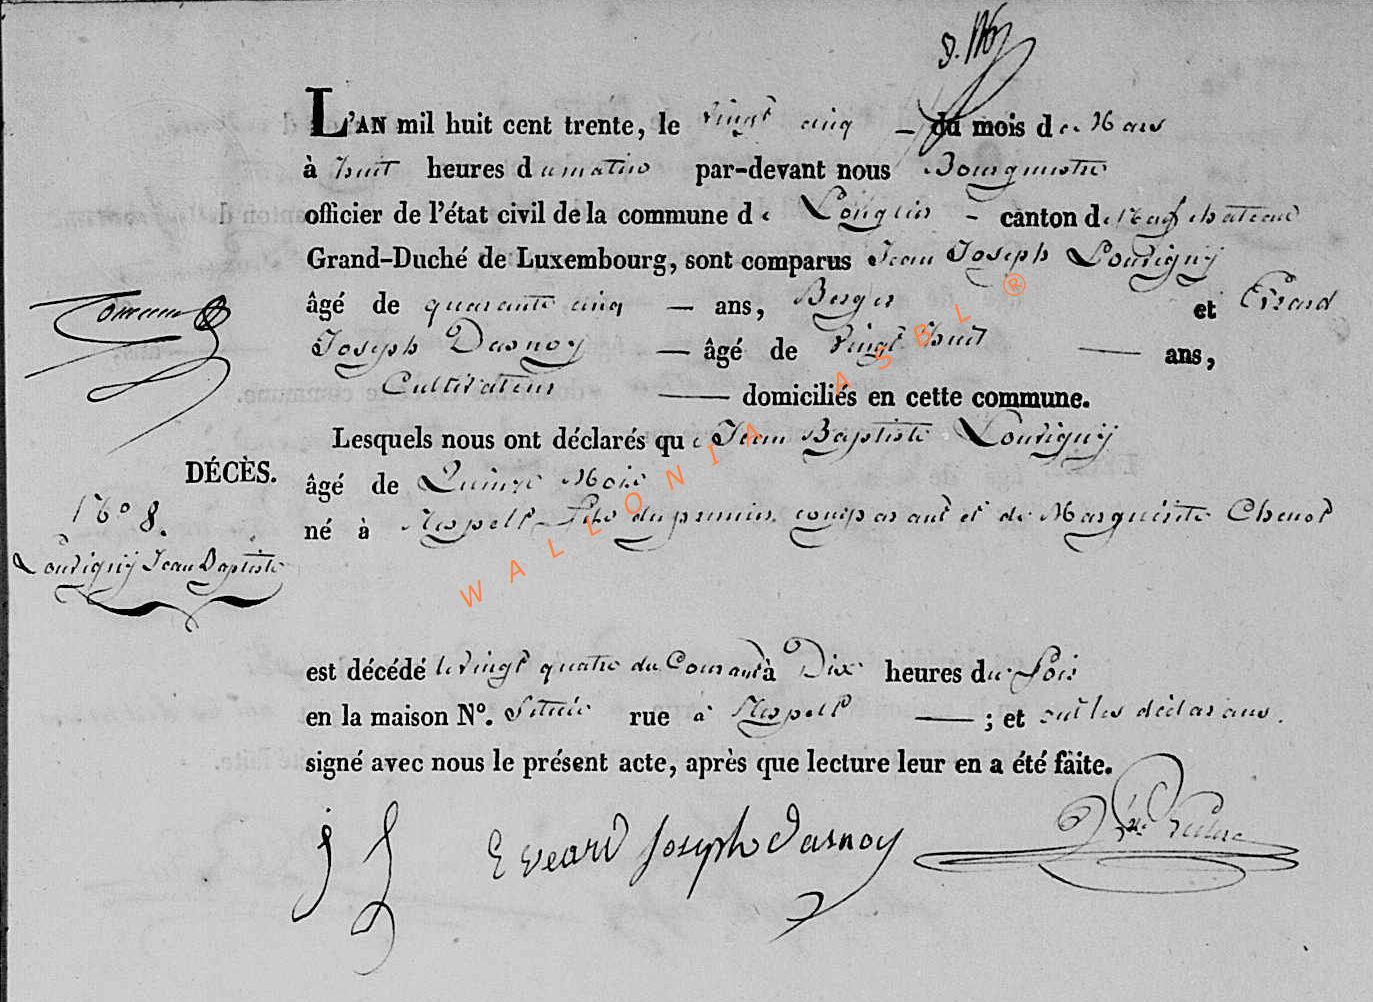 L'AN mil huit cent trente, le vingt cinq — du mois de Mars
à huit heures du matin par-devant nous Bourgmestre
officier de l'état civil de la commune de Longlier - canton de Neufchateau
Grand-Duché de Luxembourg, sont comparus Jean Joseph Louvigny
âgé de quarante cinq — ans, Berger et Evrard
Joseph Dasnoy — âgé de vingt huit — ans,
Cultivateur — domiciliés en cette commune.
Lesquels nous ont déclarés que Jean Baptiste Louvigny
DÉCÈS.
âgé de Quinze Mois
N° 8.
né à Respelt fils du premier comparant et de Marguerite Chenot
Louvigny Jean Baptiste
est décédé le vingt quatre du Courant à Dix heures du soir
en la maison N°. située rue à Respelt — ; et ont les déclarans.
signé avec nous le présent acte, après que lecture leur en a été faite.
Evrard Joseph dasnoy
WALLONIA ASBL ®